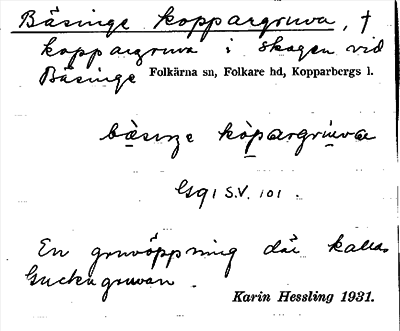 Bäsinge koppargruva, †
koppargruva i skogen vid
Bäsinge Folkärna sn, Folkare hd, Kopparbergs l.
bäsıŋe kòpargrùva
Gsq 1 S.V. 101.
En gruvöppning där kallas
Guckugruvan.
Karin Hessling 1931.